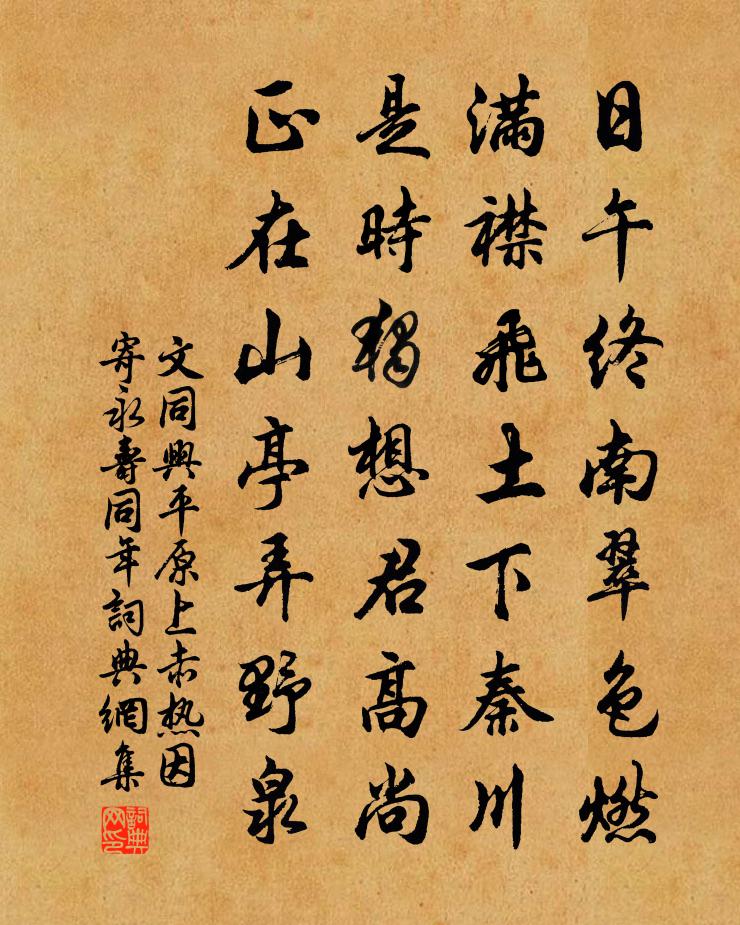 日午終南翠色燃
滿襟飛土下秦川
是時獨想君高尚
正在山亭弄野泉
文同興平原上赤热因
寄永壽同年詞典網集
詞典网印